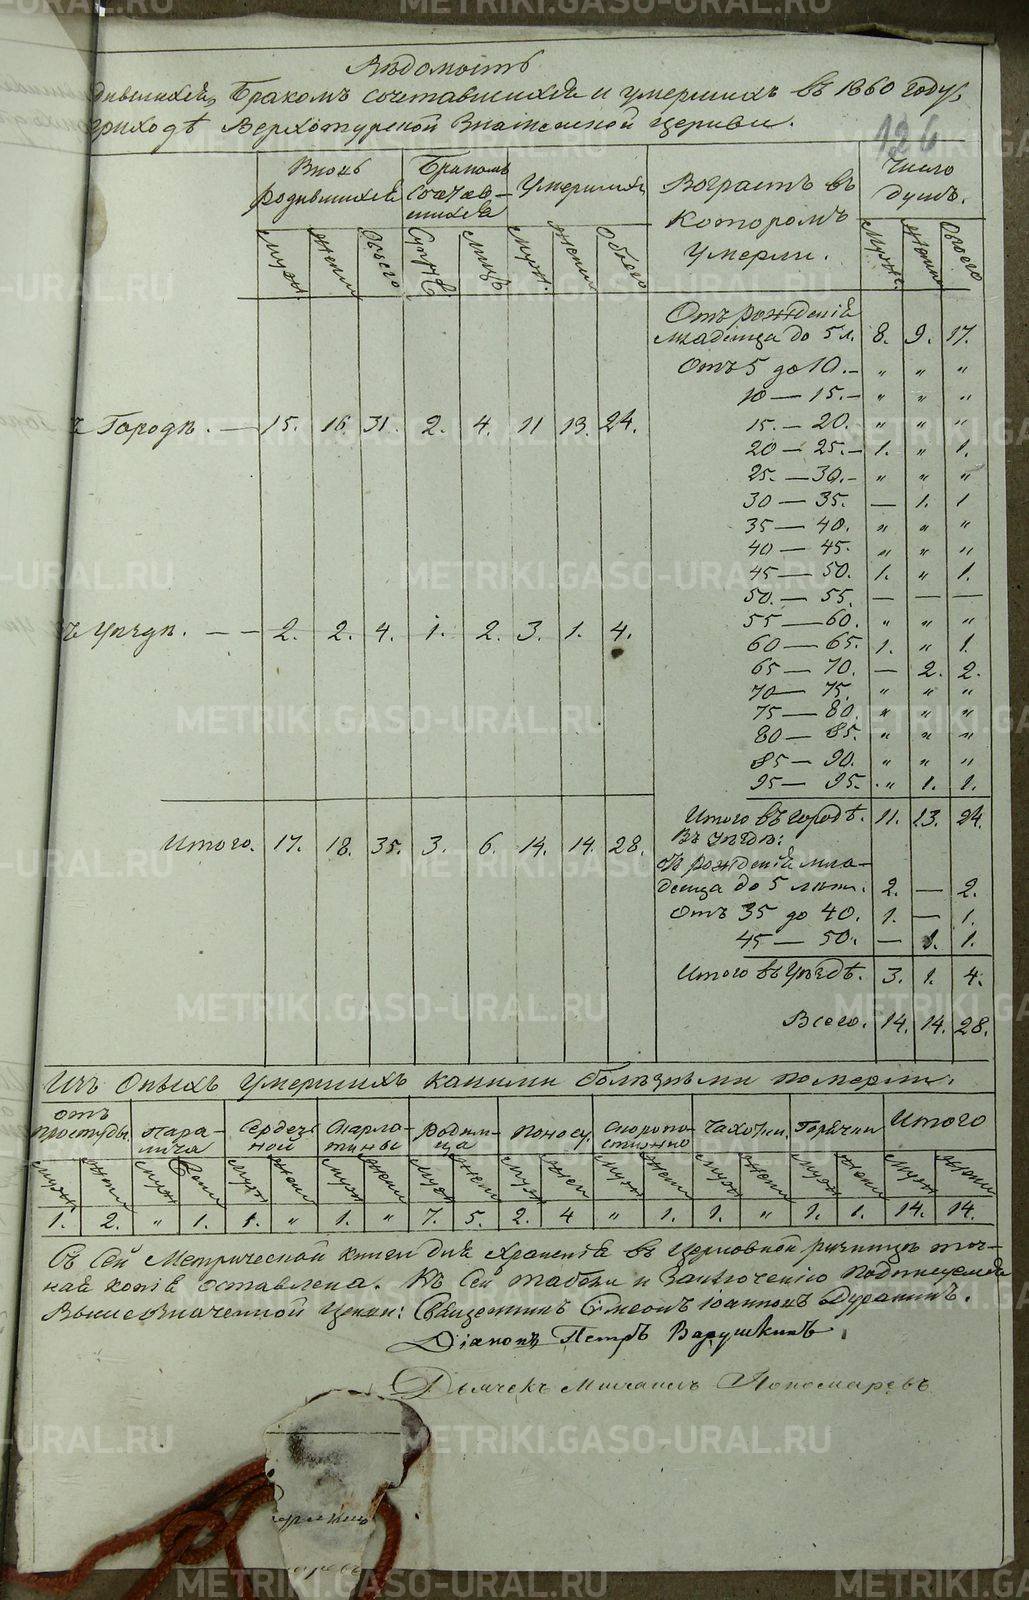 Вѣдомость
дившихся, Бракомъ сочетавшихся и умершихъ въ 1860 году,
приходѣ Верхотурской Знаменской церкви.
126
Вновь родившихся
Бракомъ сочетавшихся
Умершихъ
Возрастъ въ которомъ умерли.
Число душъ.
Мужс. Женск. Всего Супруж. Лицъ Мужс. Женск. Обоего Мужс. Женск. Обоего
Отъ рожденія
младенца до 5 л. 8. 9. 17.
Отъ 5 до 10. — " " "
10 — 15. — " " "
ъ Городѣ. — 15. 16 31. 2. 4. 11 13. 24.
15. — 20. " " "
20 — 25. — 1. " 1.
25. — 30. — " " "
30 — 35. — 1. 1
35 — 40. " " "
40 — 45. " " "
45 — 50. 1. " 1.
50. — 55. — — —
55 — 60. " " "
ъ Уѣздѣ. — — 2. 2. 4. 1. 2. 3. 1. 4.
60 — 65. 1. " 1.
65 — 70. — 2. 2.
70 — 75. " " "
75 — 80. " " "
80 — 85. " " "
85 — 90. " " "
95 — 95. " 1. 1.
Итого въ городѣ. 11. 13. 24.
Итого. 17. 18. 35. 3. 6. 14. 14 28.
Въ Уѣздѣ:
рожденія мла-
денца до 5 лѣтъ. 2. — 2.
Отъ 35 до 40. 1. — 1.
45 — 50. — 1. 1.
Итого въ Уѣздѣ. 3. 1. 4.
Всего. 14. 14. 28.
Изъ Оныхъ Умершихъ какими болѣзньми померли.
отъ простуды. пара-лича Сердеч-ной Скарла-тины родим-ца поносу. Скоропо-стижно Чахотки. Горячки Итого
Мужс Женск Мужс Женс Мужс Женск Мужс Женск Мужс Женск Мужс Женс Мужс Женск Мужс Женск Мужс Женск Мужс Женск
1. 2. " 1. 1. " 1. " 7. 5. 2. 4 " 1. 1. " 1. 1. 14. 14.
Съ Сей Метрической книги для храненія въ Церковной ризницѣ точ-
ная копія оставлена. Къ Сей табели и Заключенію подписуемся
Вышеозначенной Церкви: Священникъ Симеонъ Іоанновъ Дуранинъ.
Діаконъ Петръ Варушкинъ.
Дьячекъ Михаилъ Пономаревъ
METRIKI.GASO-URAL.RU